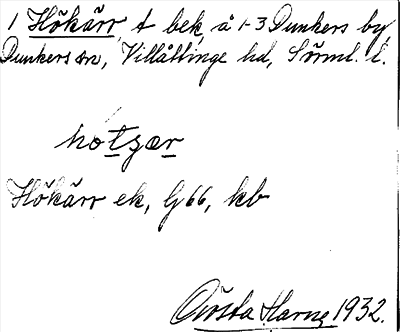 1 Hökärr, t bek, å 1-3 Dunkers by,
Dunkers sn, Villåttinge hd, Sörml. l.
Hökärr ek, G66, kb
Gösta Harne 1932.